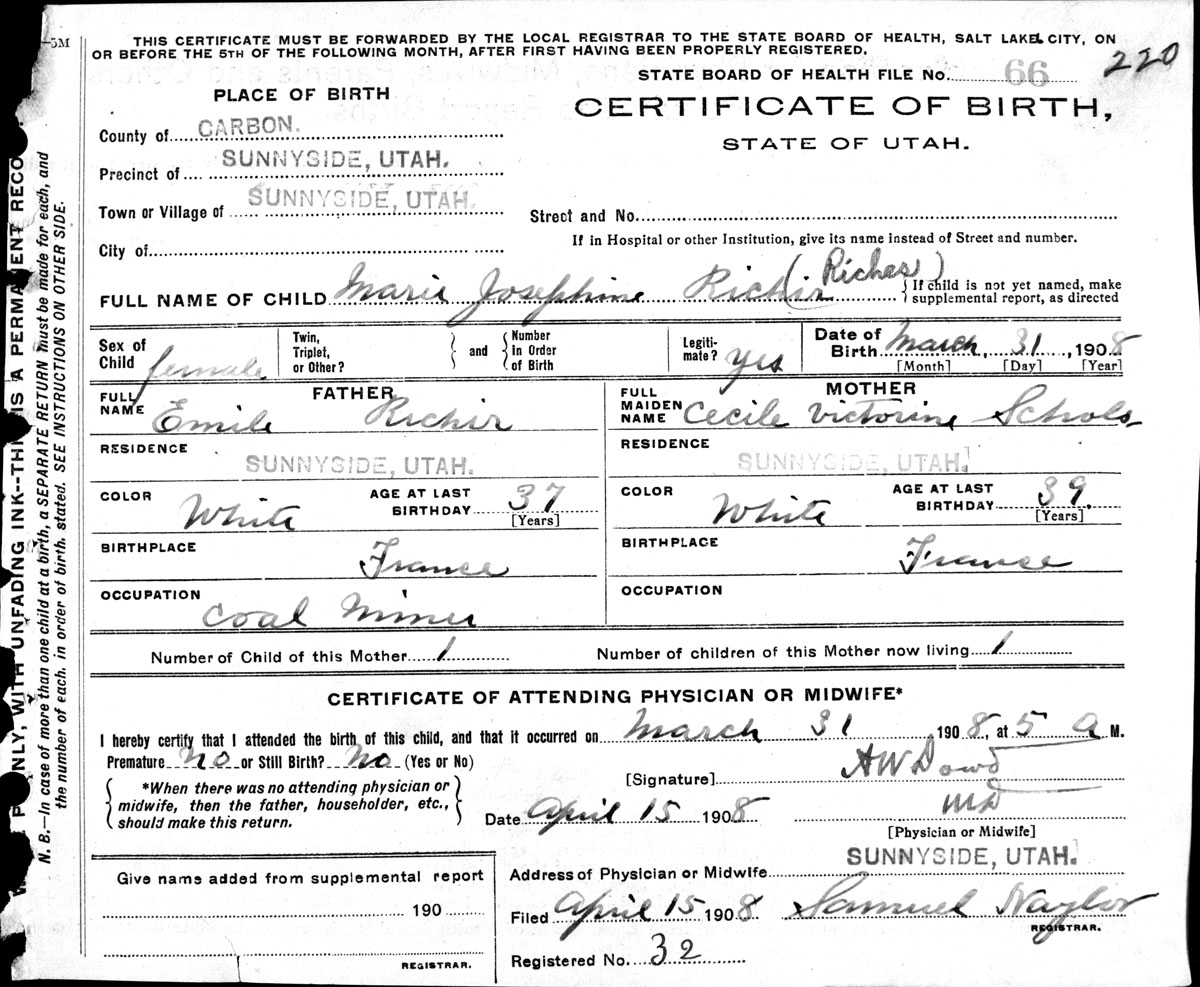 -5M
THIS CERTIFICATE MUST BE FORWARDED BY THE LOCAL REGISTRAR TO THE STATE BOARD OF HEALTH, SALT LAKE CITY, ON
OR BEFORE THE 5TH OF THE FOLLOWING MONTH, AFTER FIRST HAVING BEEN PROPERLY REGISTERED.
220
STATE BOARD OF HEALTH FILE No. 66
PLACE OF BIRTH
CERTIFICATE OF BIRTH,
STATE OF UTAH.
County of CARBON.
Precinct of SUNNYSIDE, UTAH.
Town or Village of SUNNYSIDE, UTAH.
Street and No.
If in Hospital or other Institution, give its name instead of Street and number.
City of
FULL NAME OF CHILD Marie Josephine Richir (Riches)
If child is not yet named, make
supplemental report, as directed
Sex of Child female
Twin, Triplet, or Other?
and
Number in Order of Birth
Legiti-mate? yes
Date of Birth March, 31, 1908
[Month] [Day] [Year]
FATHER
FULL NAME Emile Richir
RESIDENCE
SUNNYSIDE, UTAH.
COLOR White
AGE AT LAST BIRTHDAY 37
[Years]
BIRTHPLACE
France
OCCUPATION
Coal Miner
MOTHER
FULL MAIDEN NAME Cecile Victorine Schols
RESIDENCE
SUNNYSIDE, UTAH.
COLOR White
AGE AT LAST BIRTHDAY 39.
[Years]
BIRTHPLACE
France
OCCUPATION
Number of Child of this Mother 1
Number of children of this Mother now living 1
CERTIFICATE OF ATTENDING PHYSICIAN OR MIDWIFE*
I hereby certify that I attended the birth of this child, and that it occurred on March 31 1908, at 5 a M.
Premature No or Still Birth? No (Yes or No)
[Signature] A W Dowd
*When there was no attending physician or
midwife, then the father, householder, etc.,
should make this return.
Date April 15 1908
MD
[Physician or Midwife]
Give name added from supplemental report
190
REGISTRAR.
Address of Physician or Midwife SUNNYSIDE, UTAH.
Filed April 15 1908 Samuel Naylor
REGISTRAR.
Registered No. 32
ONLY, WITH UNFADING INK--THIS IS A PERMANENT RECO
N. B.—In case of more than one child at a birth, a SEPARATE RETURN must be made for each, and
the number of each, in order of birth, stated. SEE INSTRUCTIONS ON OTHER SIDE.